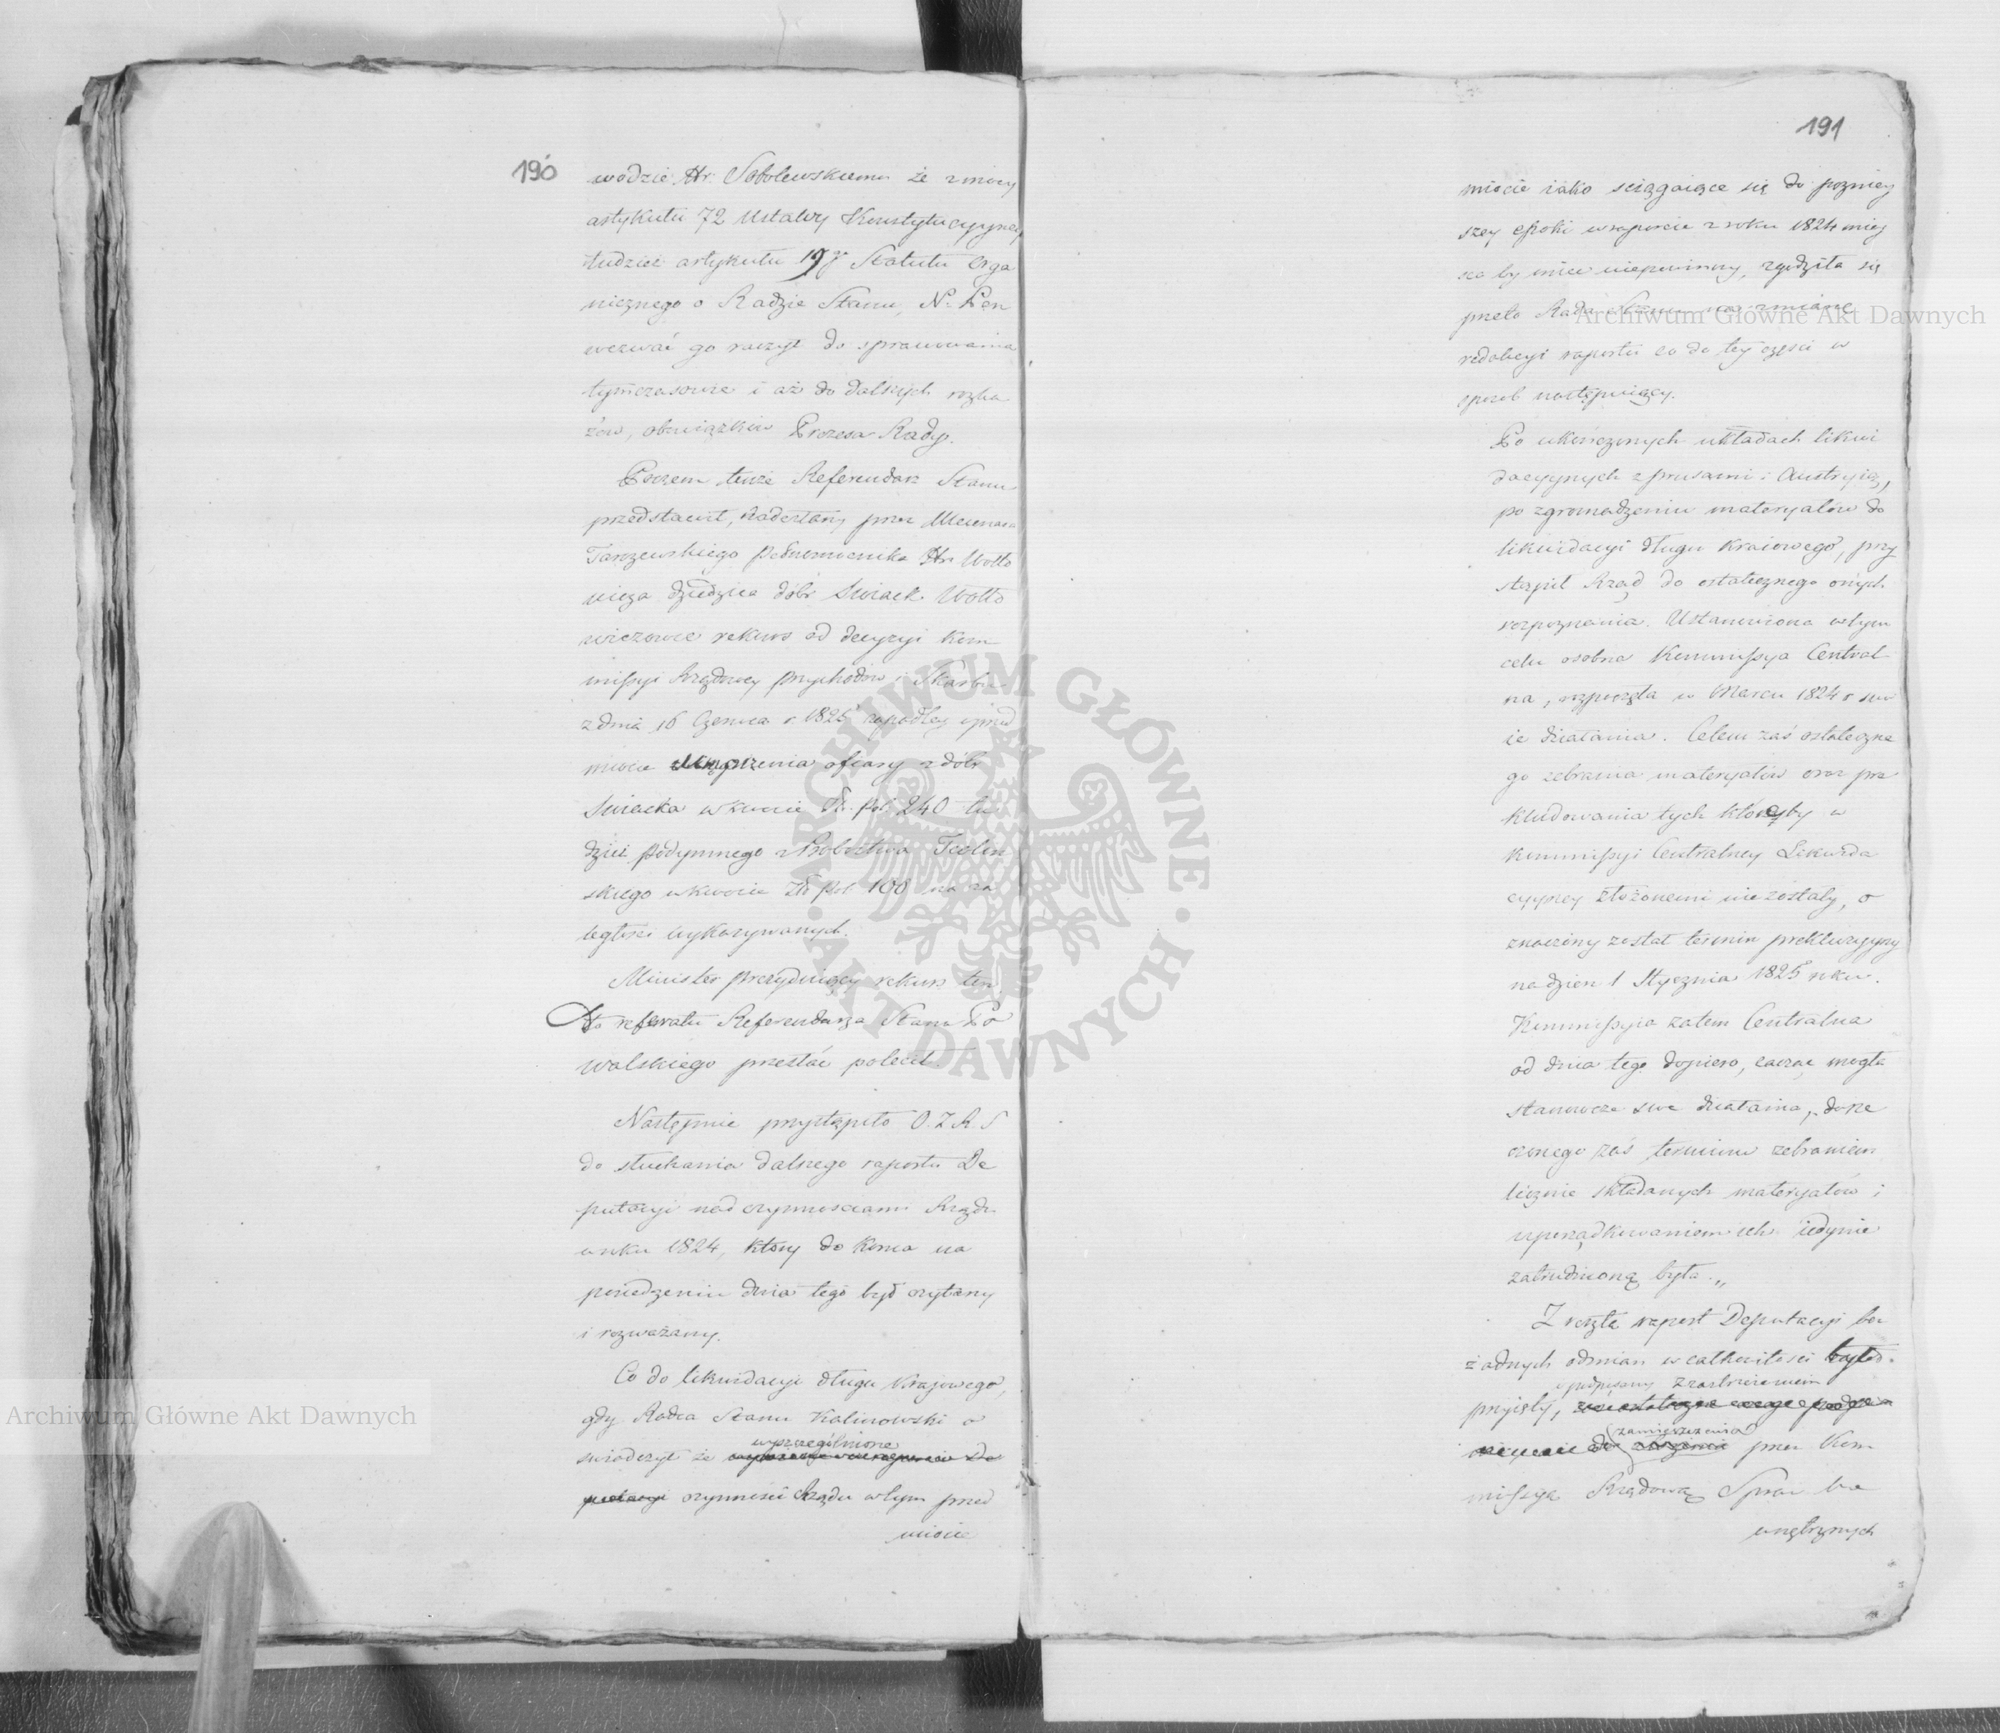 190
wodzie Hr. Sobolewskiemu że z mocy
artykułu 72 Ustawy Konstytucyyney
tudzież artykułu 19go Statutu Orga
nicznego o Radzie Stanu, N. Pan
wezwać go raczył do sprawowania
tymczasowie i aż do dalszych rozka
zów, obowiązków Prezesa Rady.
Poczem tenże Referendarz Stanu
przedstawił, nadesłany przez Mecenasa
Tarczewskiego Pełnomocnika Hr. Wołło
wicza dziedzica dóbr Swiack Wołło
wiczowce rekurs od decyzyi Kom
missyi Rządowey Przychodów i Skarbu
z dnia 16 Czerwca r. 1825 zapadłey w przed
miocie ofiary z dóbr
Swiacka w kwocie Zł. Pol. 240 tu
dzież podymnego z Probostwa Teolin
skiego w kwocie Zł. Pol. 108 na za
ległości wykazywanych.
Minister Prezyduiący rekurs ten
do referatu Referendarza Stanu Po
walskiego przesłać polecił.
Następnie przystąpiło O. Z. R. S
do słuchania dalszego raportu De
putacyi nad czynnościami Rządu
w roku 1824, który do końca na
posiedzeniu dnia tego był czytany
i rozważany.
Co do likwidacyi długu Krajowego,
gdy Radca Stanu Kalinowski o
wyszczególnione
swiadczył że
czynności Rządu w tym przed
miocie
191
miocie iako sciągaiące się do pozniey
szey epoki w raporcie z roku 1824 miey
sca by mieć niepowinny, zgodziła się
przeto Rada Stanu na zmianę
redakcyi raportu co do tey części w
sposób następuiący.
Po ukończonych układach likwi
dacyynych z Prusami i Austryią,
po zgromadzeniu materyałów do
likwidacyi długu Kraiowego, przy
stąpił Rząd do ostatecznego onych
rozpoznania. Ustanowiona w tym
celu osobna Kommissya Central
na, rozpoczęła w Marcu 1824 r. swo
ie działania. Celem zaś ostateczne
go zebrania materyałów oraz pre
kludowania tych któreby w
Kommissyi Centralney Likwida
cyyney złożonemi nie zostały, o
znaczony został termin prekluzyyny
na dzień 1 Stycznia 1825 roku.
Kommissyia zatem Centralna
od dnia tego dopiero, zacząć mogła
stanowcze swe działania, do rze
czonego zaś terminu zebraniem
licznie składanych materyałów i
uporządkowaniem ich iedynie
zatrudnioną była.„
Z resztą raport Deputacyi bez
żadnych odmian w całkowitości został
podpisany z zastrzeżeniem
przyięty,
zamieszczenia
przez Kom
missyą Rządową Spraw We
wnętrznych
Archiwum Główne Akt Dawnych
Archiwum Główne Akt Dawnych
ARCHIWUM GŁÓWNE · AKT DAWNYCH ·